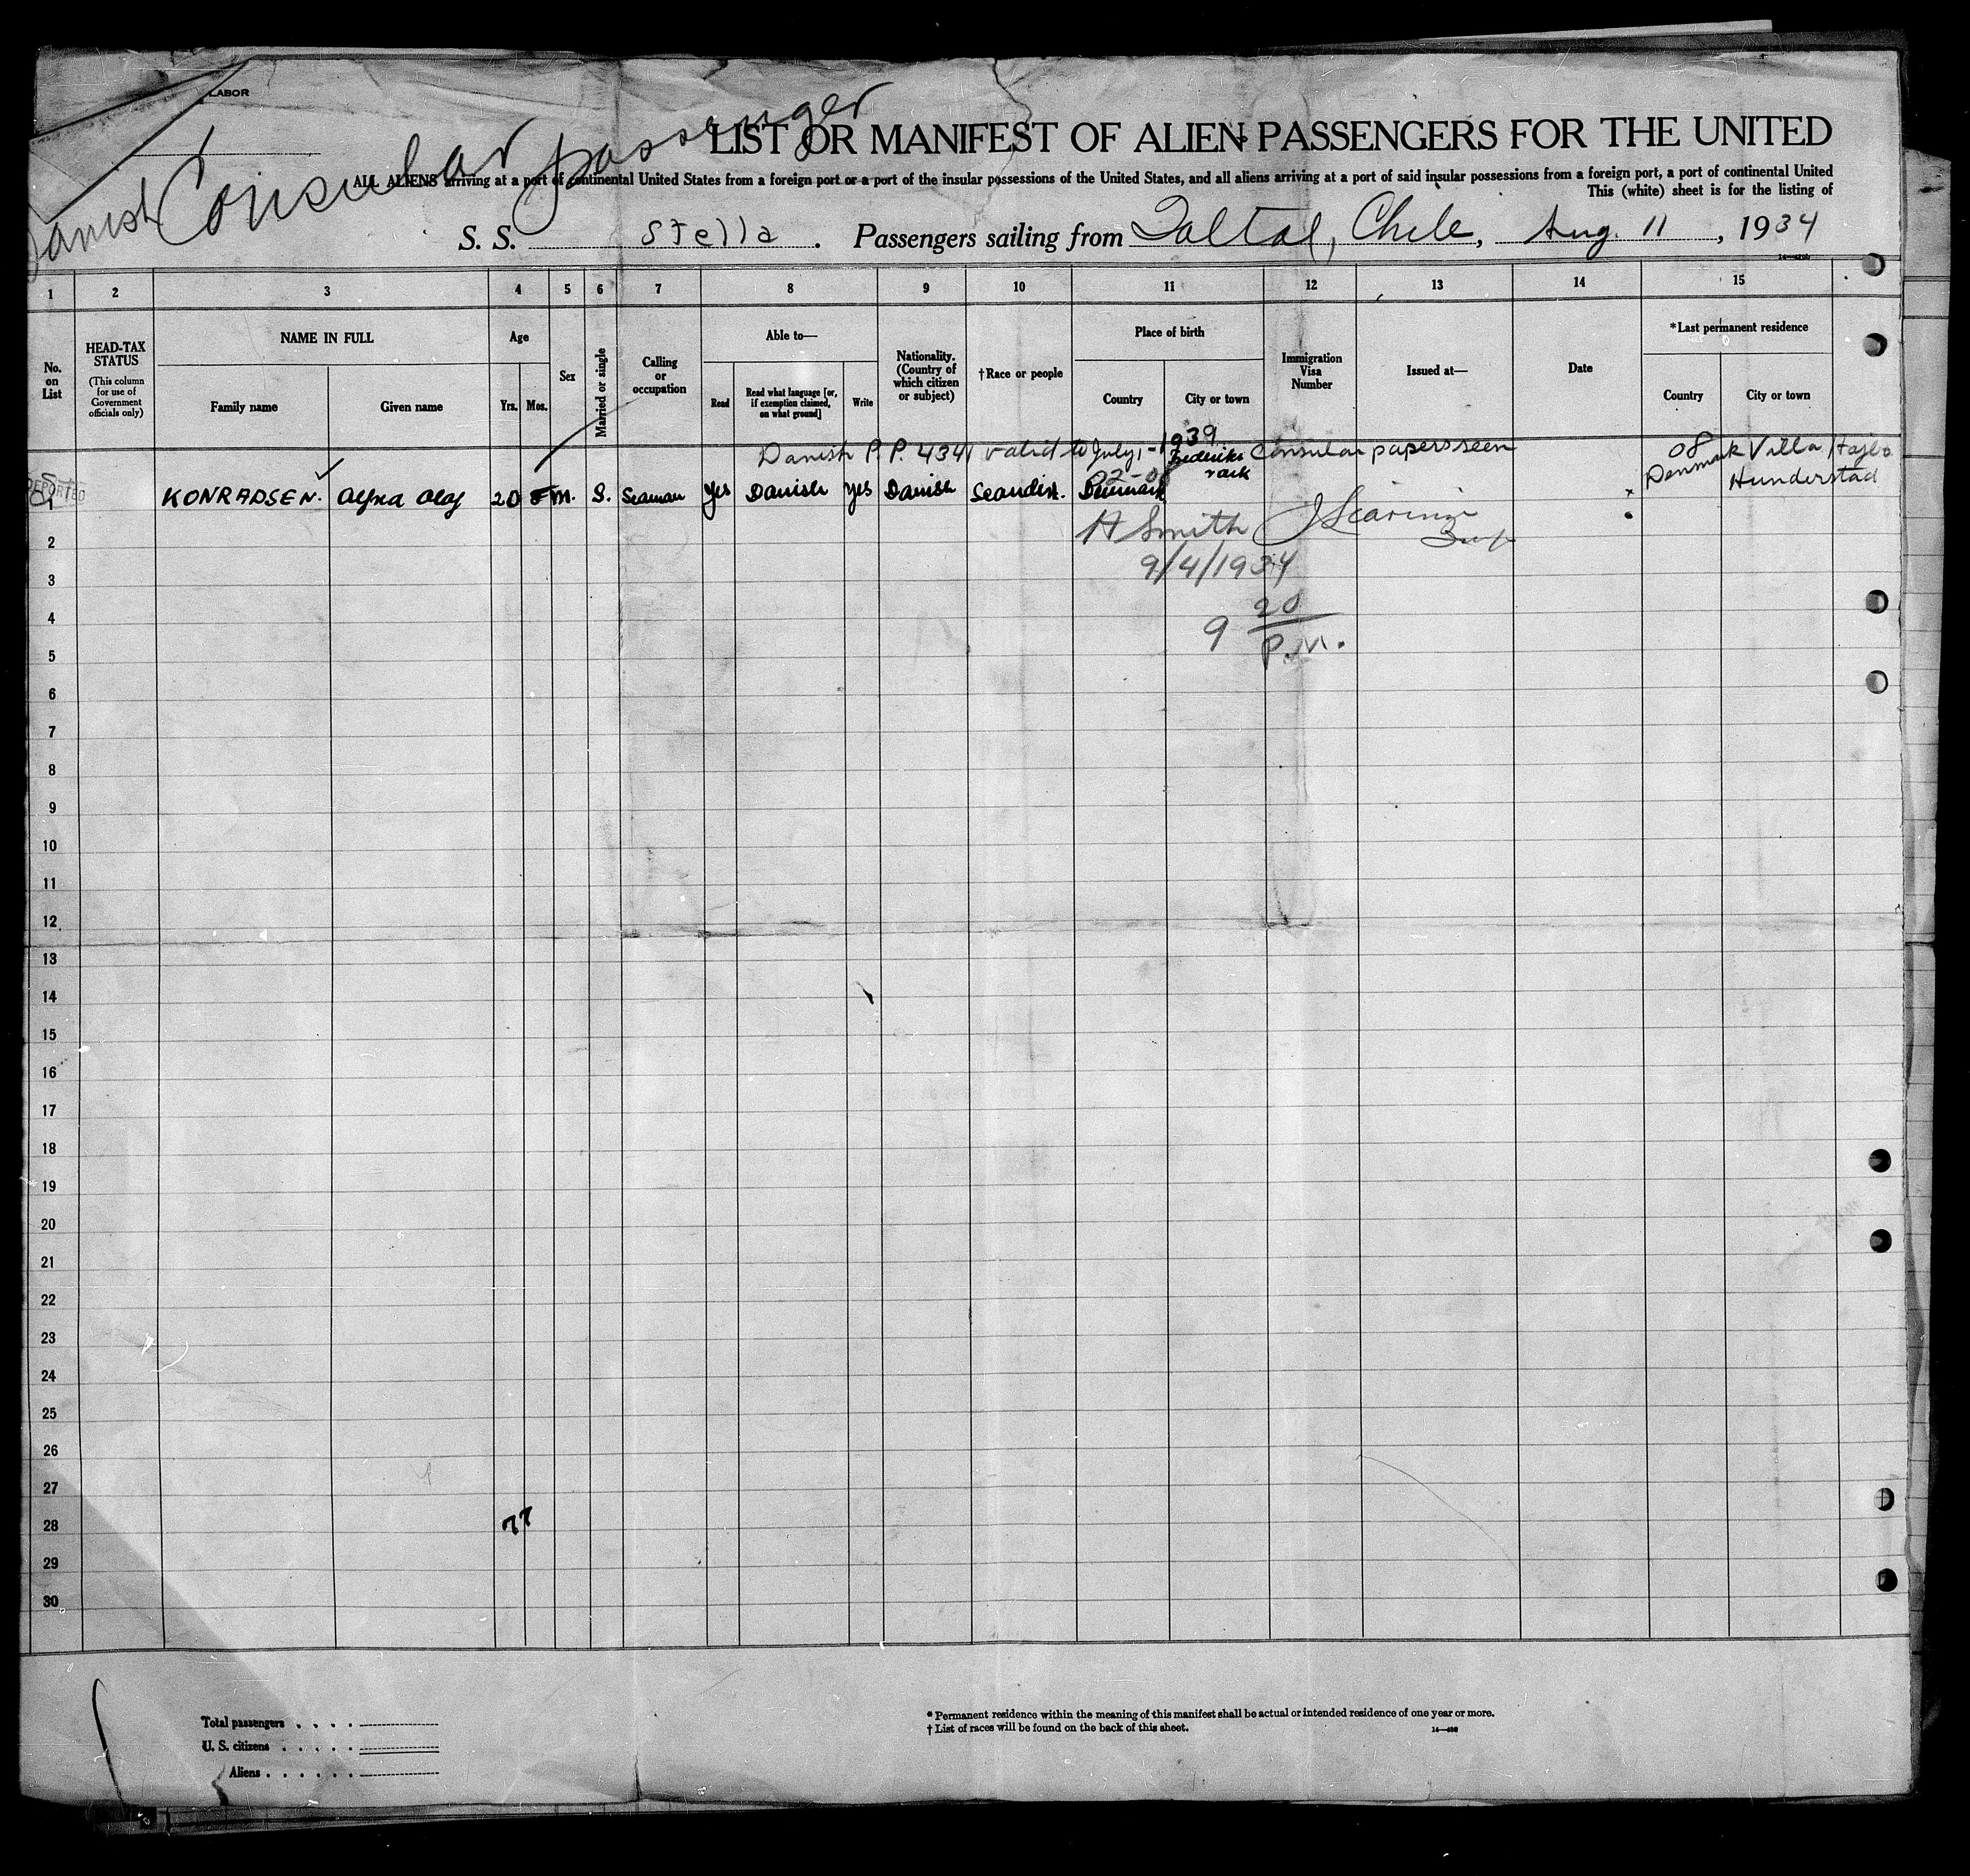 LABOR
Danish Consular passenger
LIST OR MANIFEST OF ALIEN PASSENGERS FOR THE UNITED
ALL ALIENS arriving at a port of continental United States from a foreign port or a port of the insular possessions of the United States, and all aliens arriving at a port of said insular possessions from a foreign port, a port of continental United
This (white) sheet is for the listing of
S. S. Stella . Passengers sailing from Taltal, Chile, Aug. 11, 1934
1 2 3 4 5 6 7 8 9 10 11 12 13 14 15
No. on List
HEAD-TAX STATUS
(This column for use of Government officials only)
NAME IN FULL
Family name Given name
Age
Yrs. Mos.
Sex
Married or single
Calling or occupation
Able to—
Read
Read what language [or, if exemption claimed, on what ground]
Write
Nationality. (Country of which citizen or subject)
†Race or people
Place of birth
Country City or town
Immigration Visa Number
Issued at—
Date
*Last permanent residence
Country City or town
Danish P.P. 434 valid to July, - 1939 Consular papers seen
DEPORTED
1 KONRADSEN. Olaf 20 M. S. Seaman yes Danish yes Danish Scandin. Denmark
08 Denmark Villa
Hunderstad
2 A Smith
3 9/4/1934
4 9 20
5 P.M.
6
7
8
9
10
11
12
13
14
15
16
17
18
19
20
21
22
23
24
25
26
27
28 77
29
30
Total passengers . . . .
U. S. citizens . . . . .
Aliens . . . . . .
* Permanent residence within the meaning of this manifest shall be actual or intended residence of one year or more.
† List of races will be found on the back of this sheet.